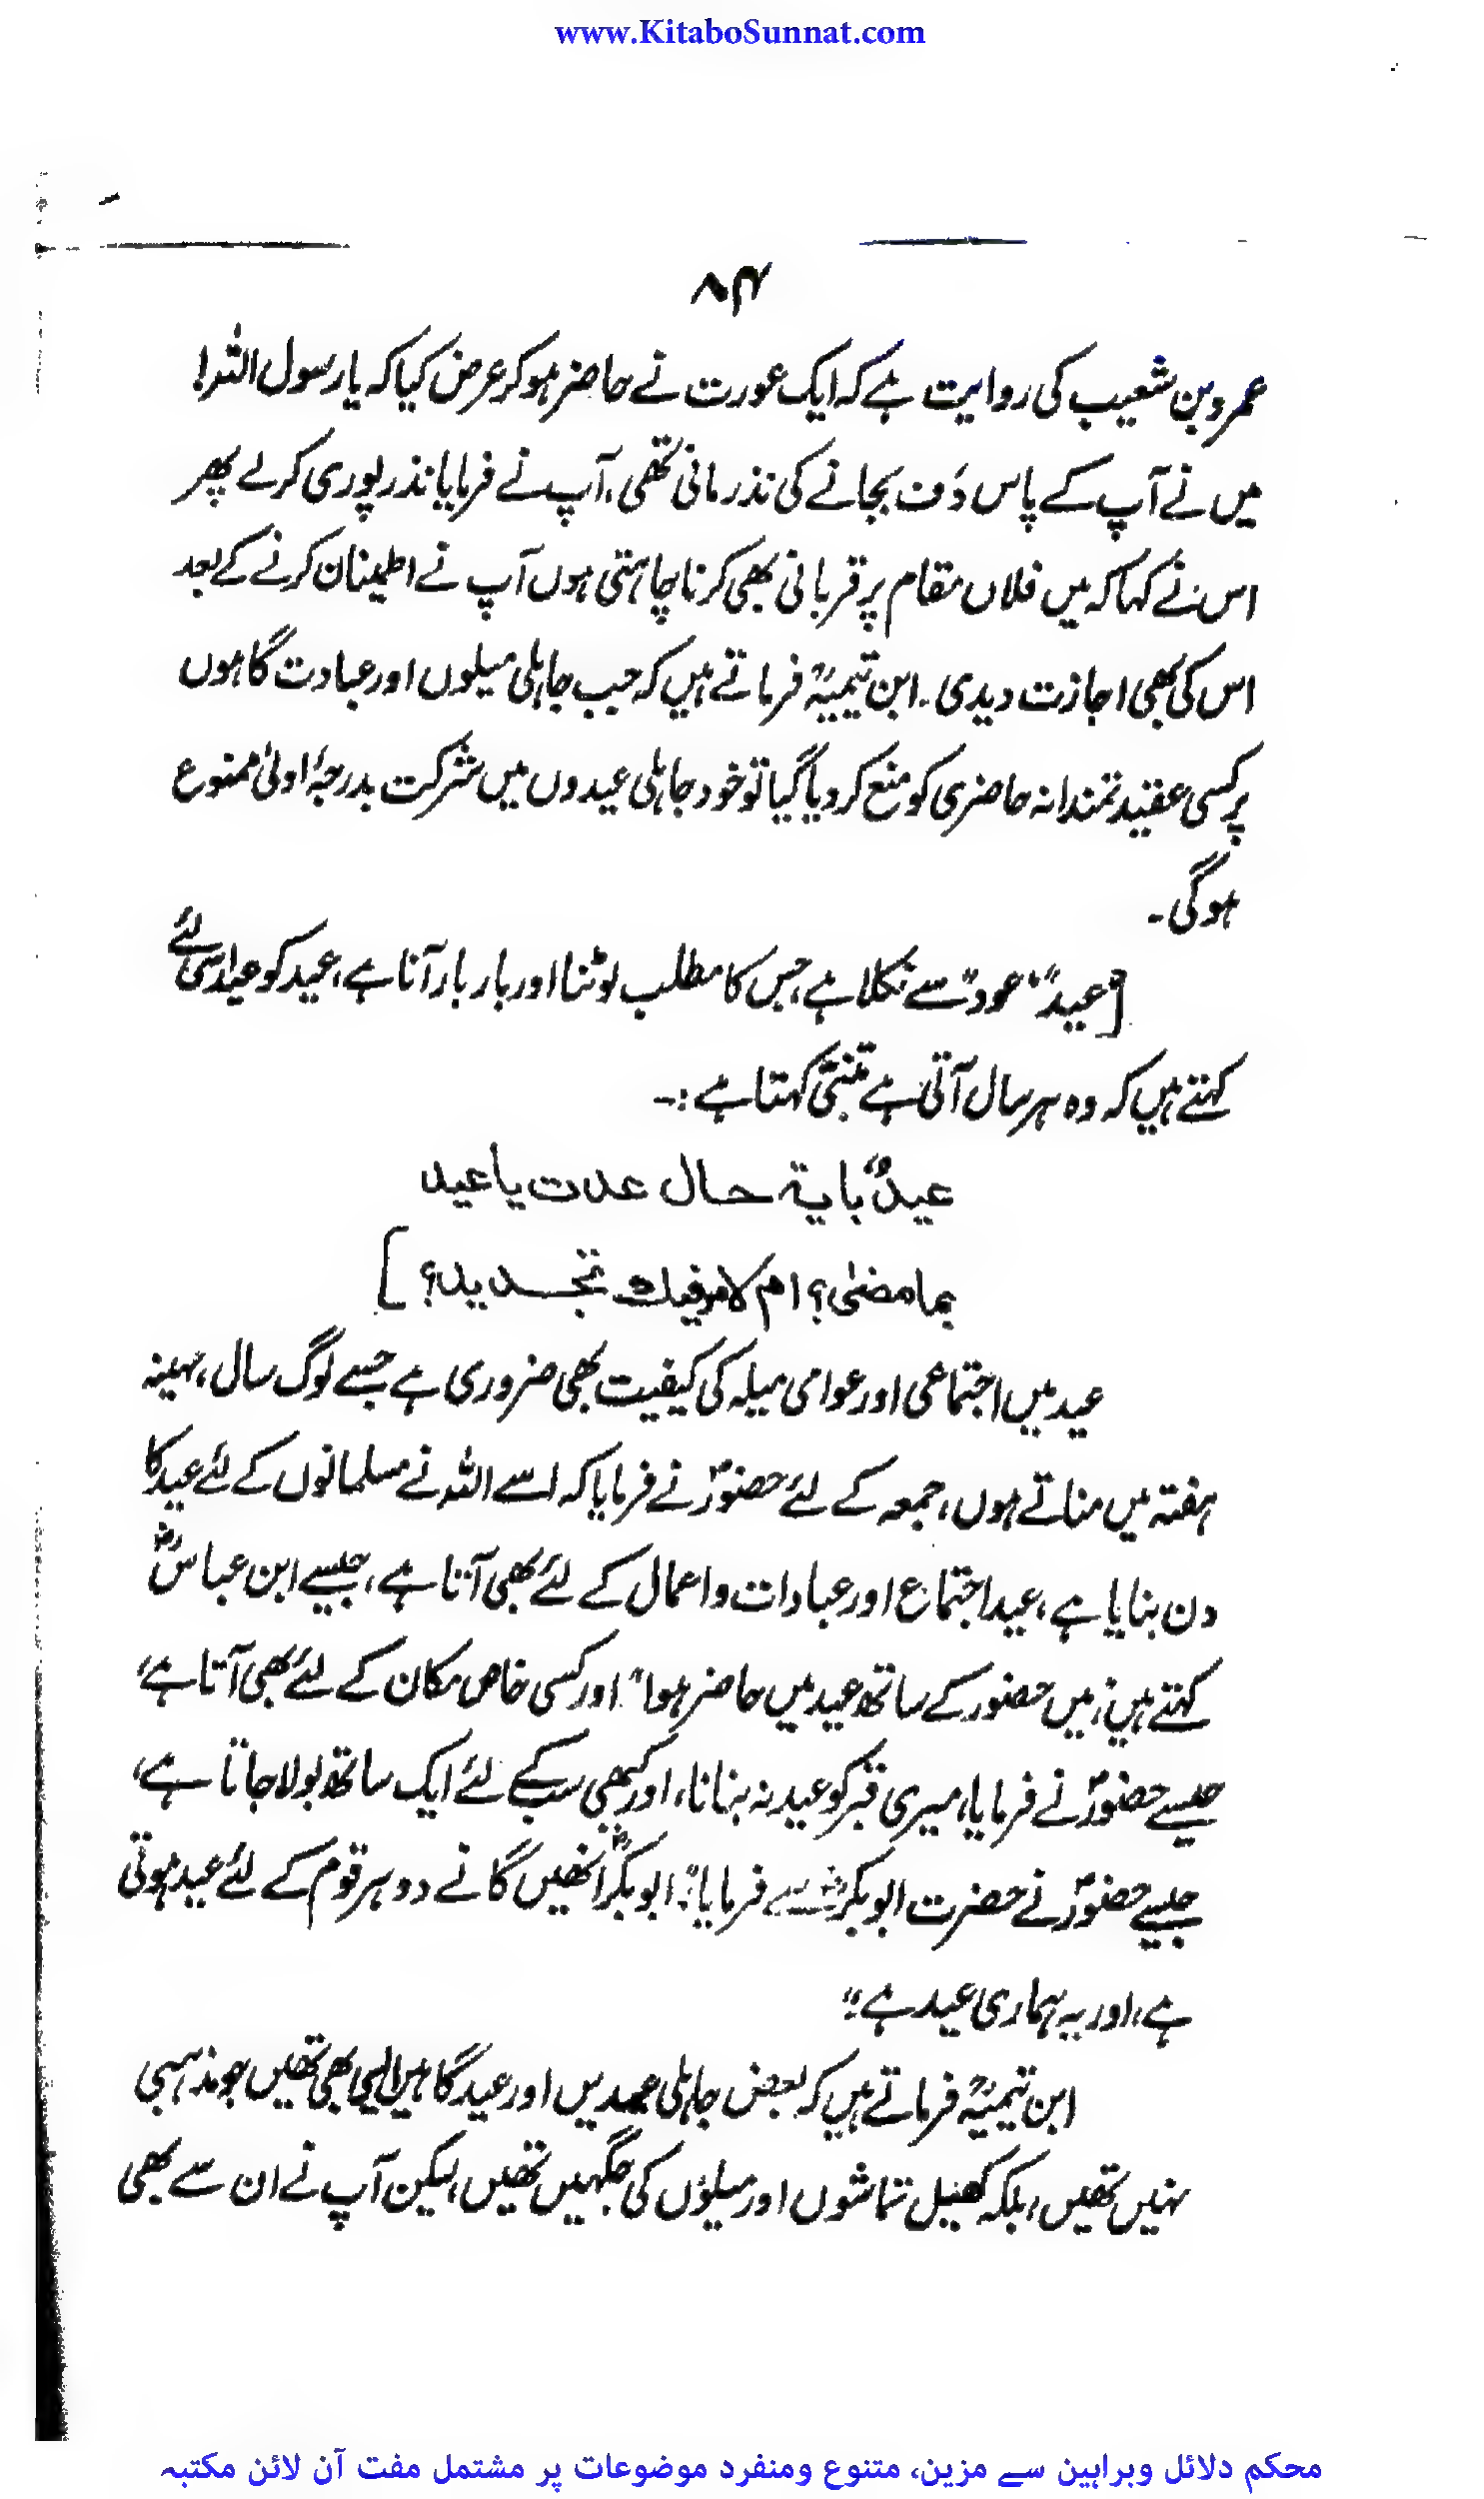 www.KitaboSunnat.com
۸۴
عمرو بن شعیب کی روایت ہے کہ ایک عورت نے حاضر ہو کر عرض کیا کہ یا رسول اللہ!
میں نے آپ کے پاس دَف بجانے کی نذر مانی تھی۔ آپ نے فرمایا نذر پوری کر لے پھر
اس نے کہا کہ میں فلاں مقام پر قربانی بھی کرنا چاہتی ہوں آپ نے اطمینان کرنے کے بعد
اس کی بھی اجازت دیدی۔ ابن تیمیہؒ فرماتے ہیں کہ جب جاہلی میلوں اور عبادت گاہوں
پر کسی عقیدتمندانہ حاضری کو منع کر دیا گیا تو خود جاہلی عیدوں میں شرکت بدرجۂ اولیٰ ممنوع
ہوگی۔
[عید" "عود" سے نکلا ہے، جس کا مطلب لوٹنا اور بار بار آنا ہے، عید کو عید اسی لئے
کہتے ہیں کہ وہ ہر سال آتی ہے متنبّی کہتا ہے :۔
عیدٌ بایة حال عدت یا عید
بما مضیٰ؟ ام لامر فیك تجدید؟]
عید میں اجتماعی اور عوامی میلہ کی کیفیت بھی ضروری ہے جسے لوگ سال، مہینہ
ہفتہ میں مناتے ہوں، جمعہ کے لئے حضورؐ نے فرمایا کہ اسے اللہ نے مسلمانوں کے لئے عید کا
دن بنایا ہے، عید اجتماع اور عبادات و اعمال کے لئے بھی آتا ہے، جیسے ابن عباسؓ
کہتے ہیں: میں حضور کے ساتھ عید میں حاضر ہوا" اور کسی خاص مکان کے لئے بھی آتا ہے،
جیسے حضورؐ نے فرمایا، میری قبر کو عید نہ بنانا، اور کبھی سب کے لئے ایک ساتھ بولا جاتا ہے،
جیسے حضورؐ نے حضرت ابوبکرؓ سے فرمایا": ابوبکرؓ انھیں گانے دو ہر قوم کے لئے عید ہوتی
ہے، اور یہ ہماری عید ہے"
ابن تیمیہؒ فرماتے ہیں کہ بعض جاہلی عیدیں اور عید گاہیں ایسی بھی تھیں جو مذہبی
نہیں تھیں، بلکہ کھیل تماشوں اور میلوں کی جگہیں تھیں، لیکن آپ نے ان سے بھی
محکم دلائل وبراہین سے مزین، متنوع ومنفرد موضوعات پر مشتمل مفت آن لائن مکتبہ